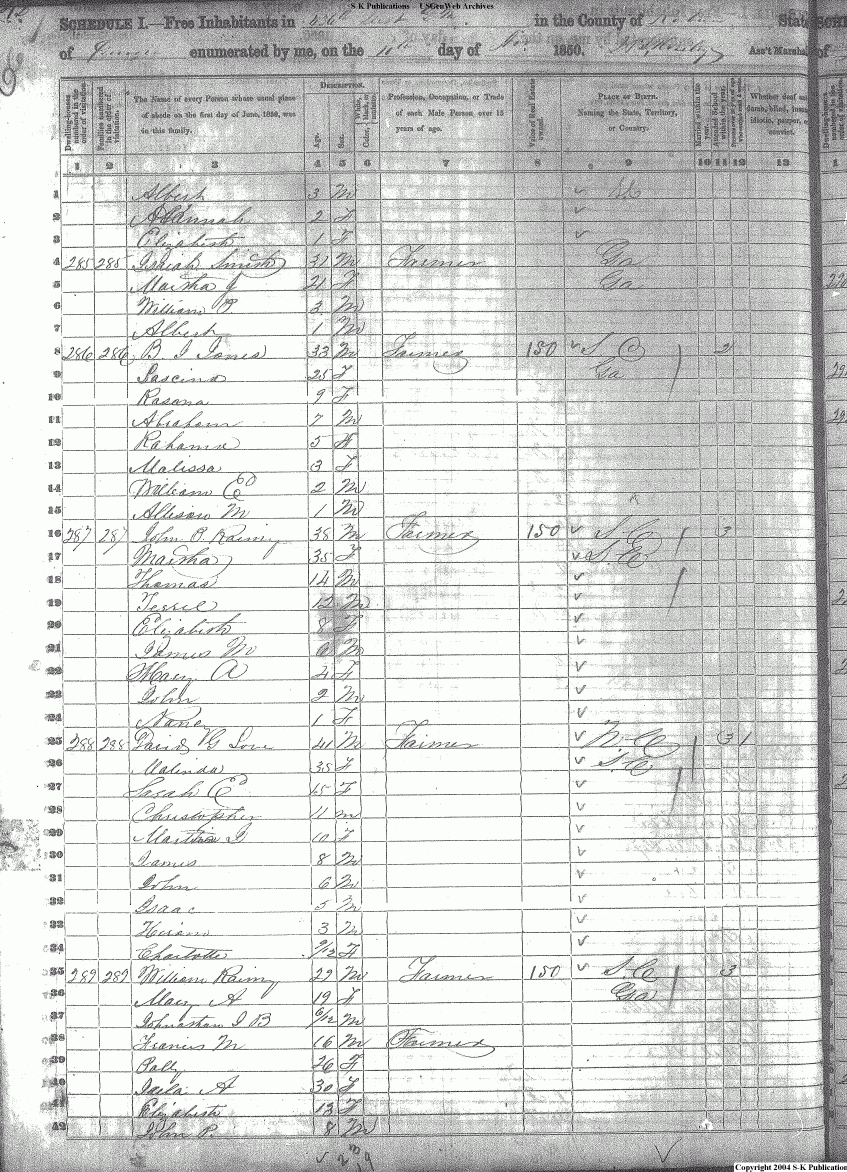 S-K Publications - USGenWeb Archives
SCHEDULE I.—Free Inhabitants in in the County of State
of enumerated by me, on the 10th day of 1850. Ass't Marshal
Dwelling-houses numbered in the order of visitation.
Families numbered in the order of visitation.
The Name of every Person whose usual place of abode on the first day of June, 1850, was in this family.
DESCRIPTION.
Age.
Sex.
Color, White, black, or mulatto.
Profession, Occupation, or Trade of each Male Person over 15 years of age.
Value of Real Estate owned.
PLACE OF BIRTH. Naming the State, Territory, or Country.
Married within the year.
Attended School within the year.
Whether deaf and dumb, blind, insane, idiotic, pauper, or convict.
1 2 3 4 5 6 7 8 9 10 11 12 13
1 Albert 3 M
2 2 F
3 Elizabeth 1 F
4 285 285 Isaiah Smith 31 M Farmer Ga
5 Martha J 21 F Ga
6 William P 3 M
7 Albert 1 M
8 286 286 B. I Jones 33 M Farmer 150 S C 2
9 25 F Ga
10 Rosana 9 F
11 Abraham 7 M
12 5 F
13 Malissa 3 F
14 William E 2 M
15 Allison M 1 M
16 287 287 John P. Rainy 38 M Farmer 150 S.C 3
17 Martha 35 F S.C
18 Thomas 14 M
19 12 M
20 Elizabeth 8 F
21 James M 6 M
22 Mary A 4 F
23 John 2 M
24 1 F
25 288 288 David G Love 41 M Farmer N.C 3 1
26 Malinda 35 F S.C
27 Sarah E 15 F
28 Christopher 11 M
29 10 F
30 James 8 M
31 John 6 M
32 Isaac 5 M
33 Hiram 3 M
34 Charlotte 9/12 F
35 289 289 William Rainy 22 M Farmer 150 S.C 3
36 Mary A 19 F Ga
37 I B 6/12 M
38 Francis M 16 M Farmer
39 Polly 26 F
40 A 30 F
41 Elizabeth 13 F
42 John P. 8 M
Copyright 2004 S-K Publications